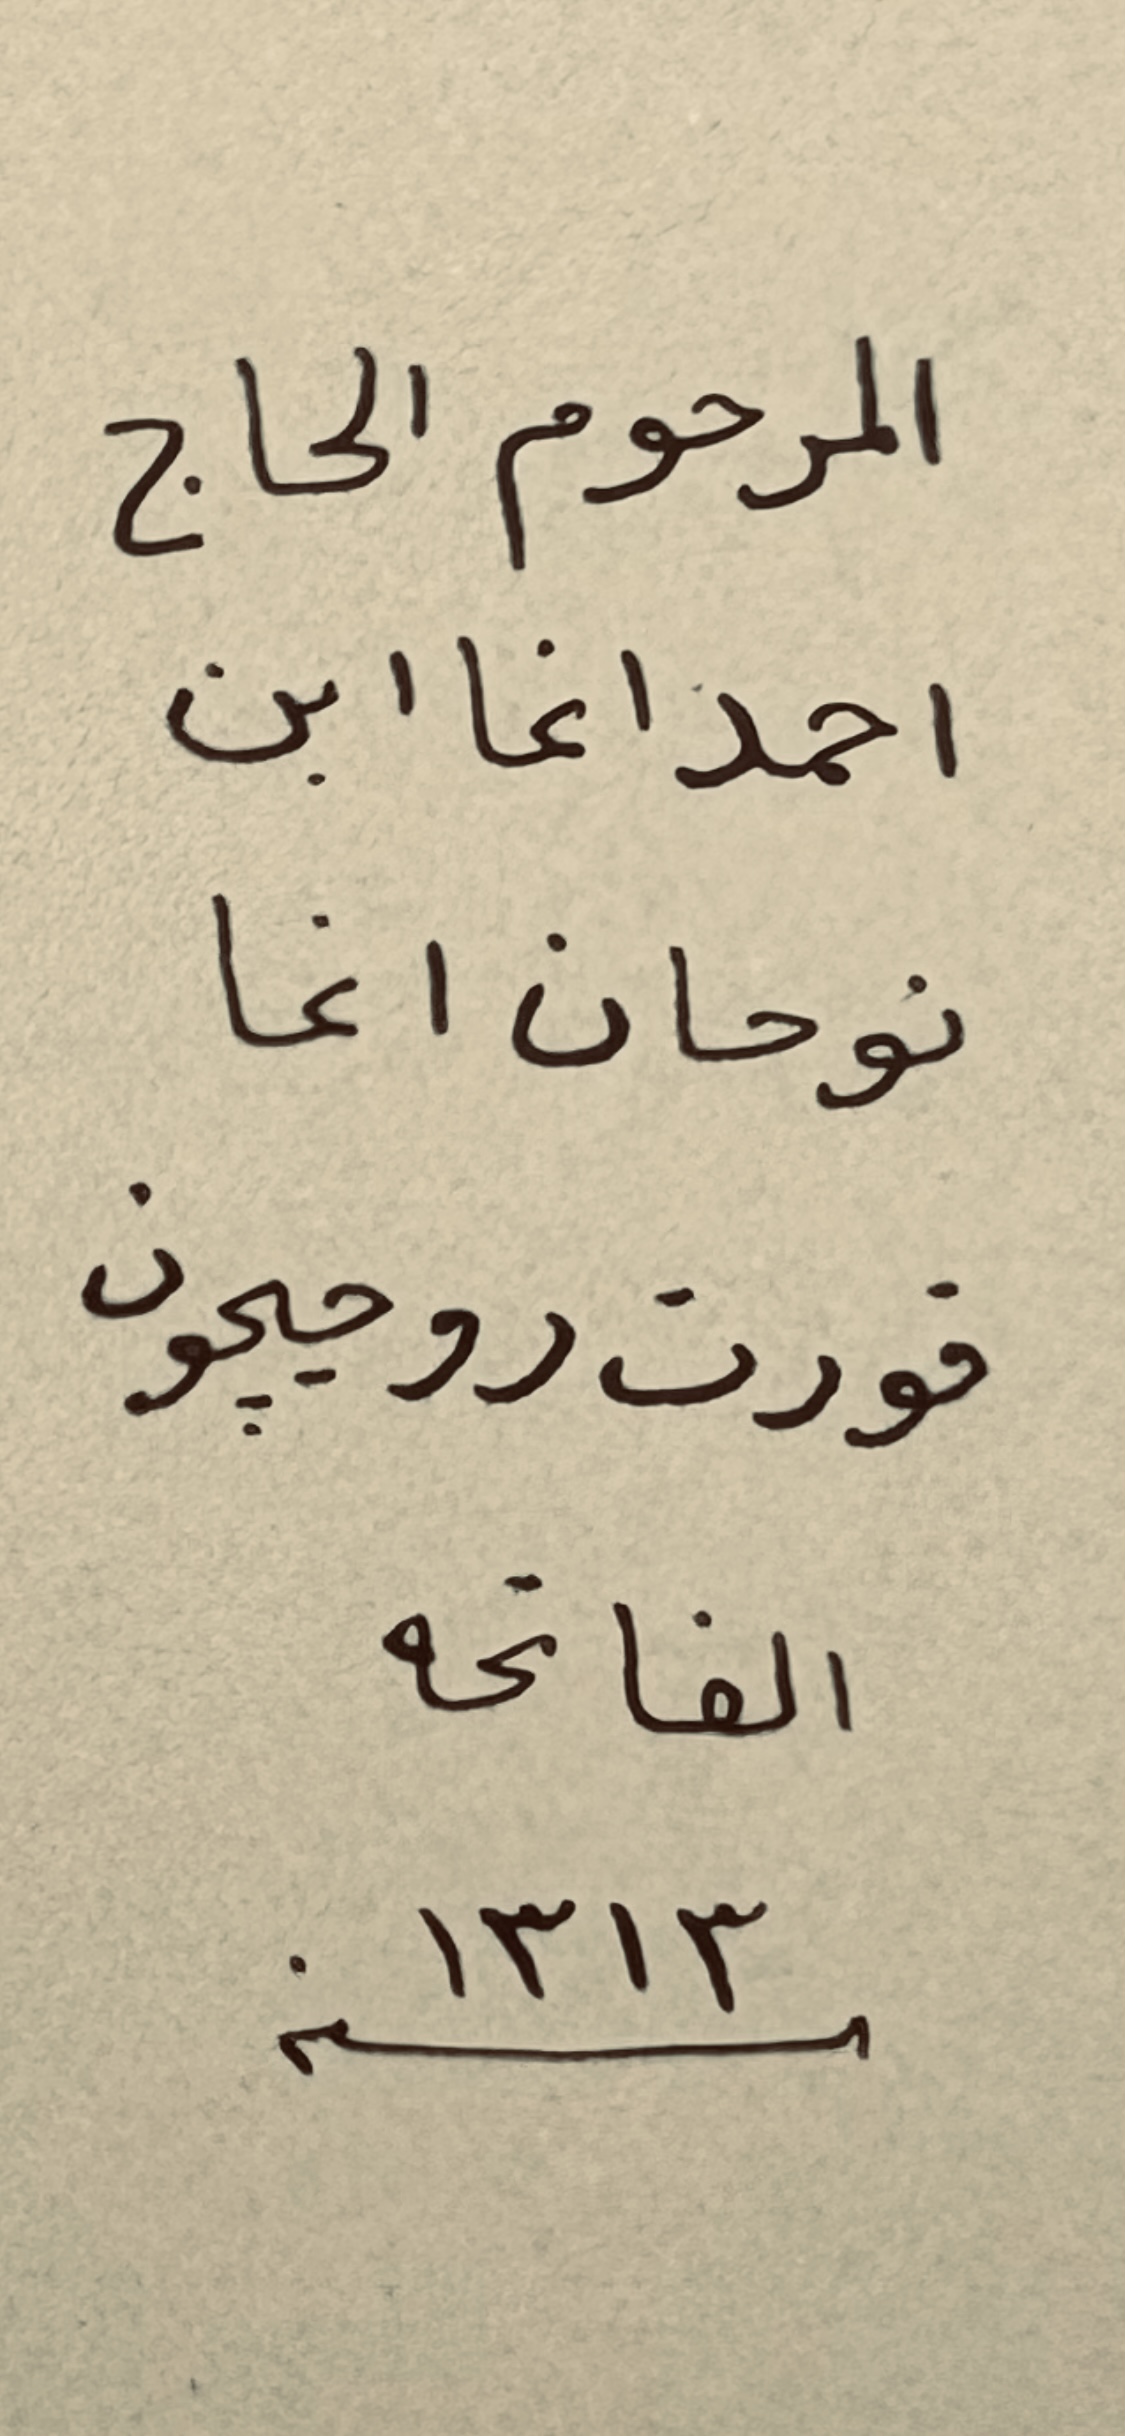 المرحوم الحاج
احمد اغا ابن
نوحان اغا
قورت روحيچون
الفاتحه
سنه ١٣١٣